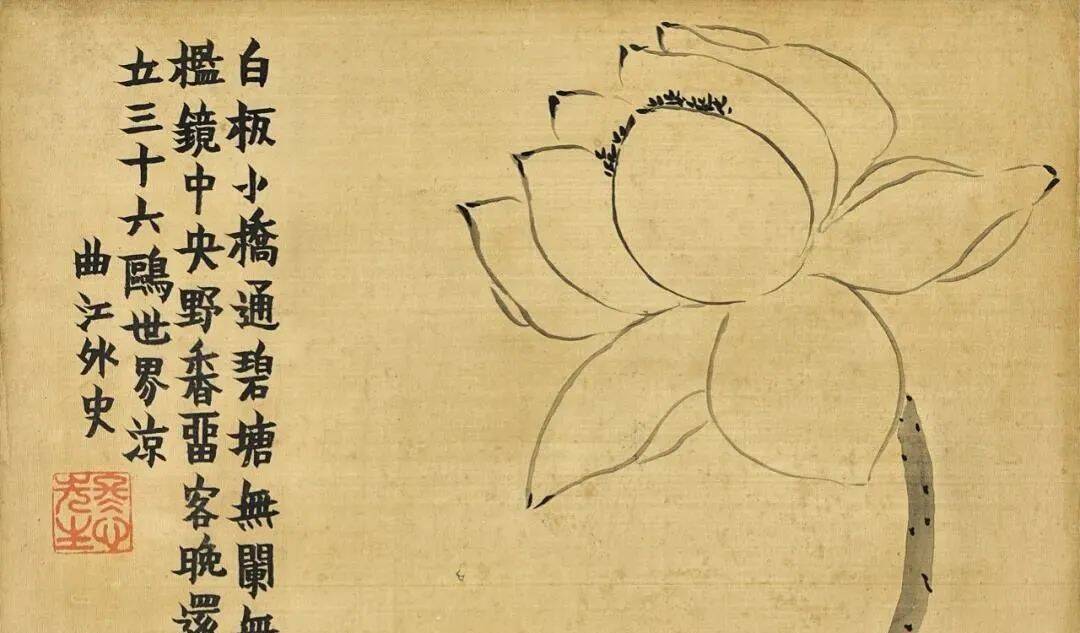 白板小橋通碧塘無闌無
檻鏡中央野香畱客晚還
立三十六鷗世界涼
曲江外史
冬心先生